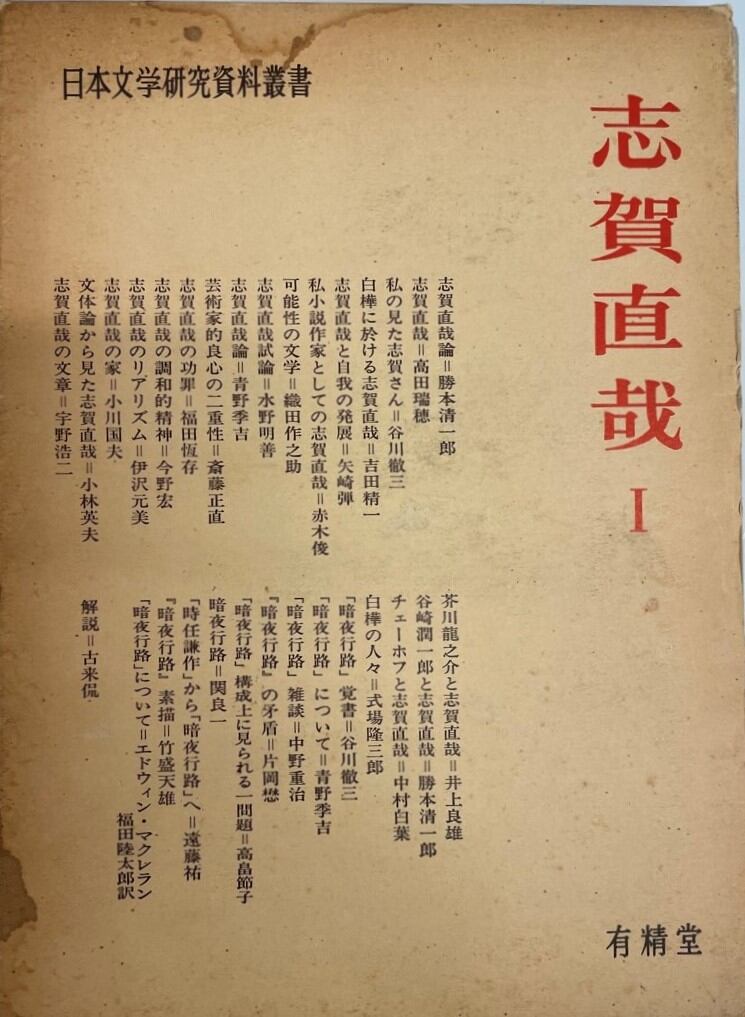 日本文学研究資料叢書
志賀直哉 I
志賀直哉論＝勝本清一郎
志賀直哉＝高田瑞穂
私の見た志賀さん＝谷川徹三
白樺に於ける志賀直哉＝吉田精一
志賀直哉と自我の発展＝矢崎弾
私小説作家としての志賀直哉＝赤木俊
可能性の文学＝織田作之助
志賀直哉試論＝水野明善
志賀直哉論＝青野季吉
芸術家的良心の二重性＝斎藤正直
志賀直哉の功罪＝福田恆存
志賀直哉の調和的精神＝今野宏
志賀直哉のリアリズム＝伊沢元美
志賀直哉の家＝小川国夫
文体論から見た志賀直哉＝小林英夫
志賀直哉の文章＝宇野浩二
芥川龍之介と志賀直哉＝井上良雄
谷崎潤一郎と志賀直哉＝勝本清一郎
チェーホフと志賀直哉＝中村白葉
白樺の人々＝式場隆三郎
「暗夜行路」覚書＝谷川徹三
「暗夜行路」について＝青野季吉
「暗夜行路」雑談＝中野重治
『暗夜行路』の矛盾＝片岡懋
「暗夜行路」構成上に見られる一問題＝高畠節子
暗夜行路＝関良一
「時任謙作」から「暗夜行路」へ＝遠藤祐
『暗夜行路』素描＝竹盛天雄
「暗夜行路」について＝エドウィン・マクレラン
福田陸太郎訳
解説＝古来侃
有精堂